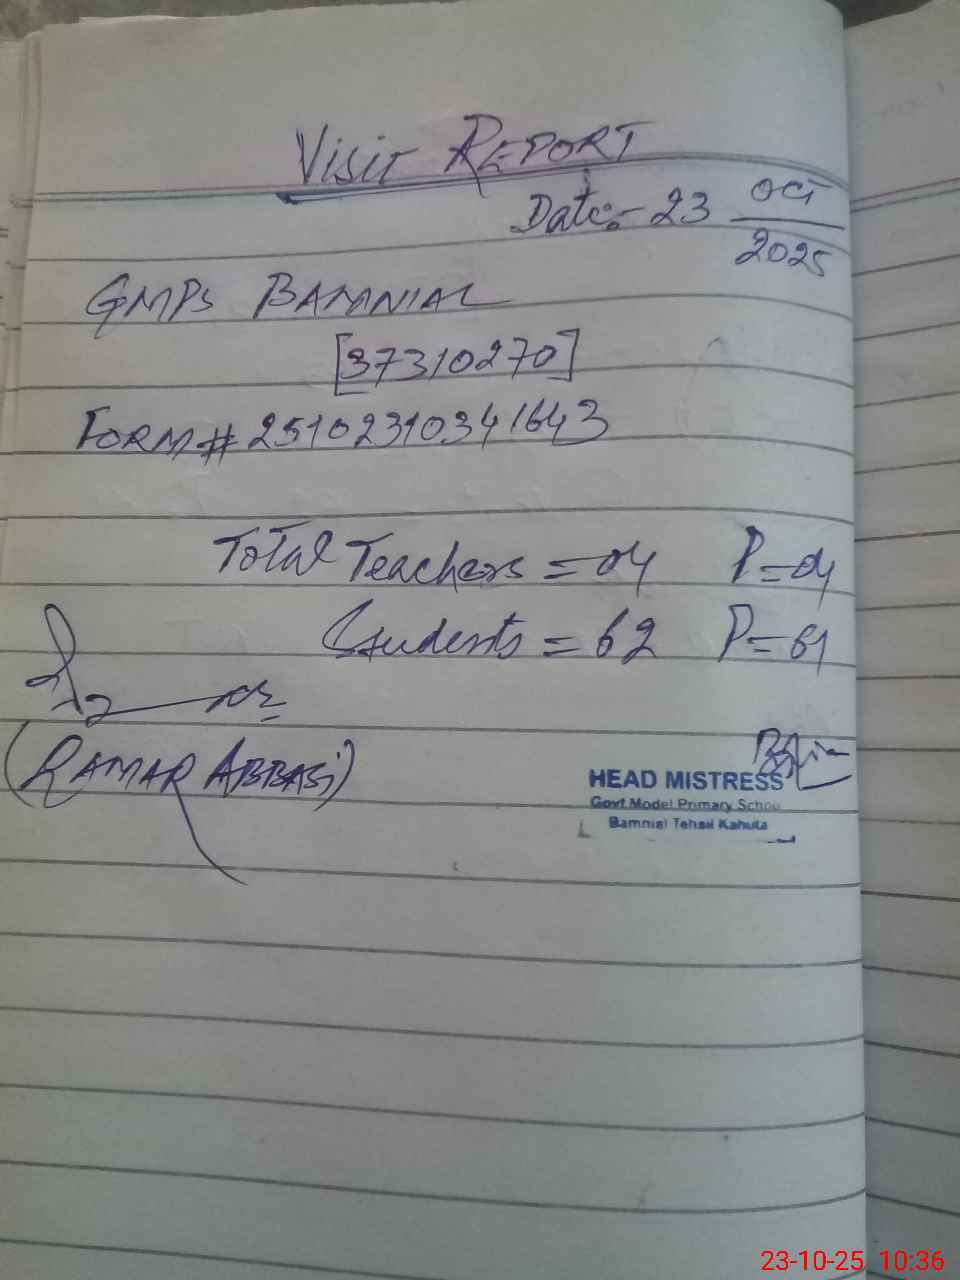 Visit REPORT
Date:- 23 OCT
2025
GMPS BAMNIAL
[37310270]
FORM# 25102310341643
Total Teachers = 04 P=04
Students = 62 P=61
(QAMAR ABBASI)
HEAD MISTRESS
Govt Model Primary School
Bamnial Tehsil Kahuta
23-10-25 10:36